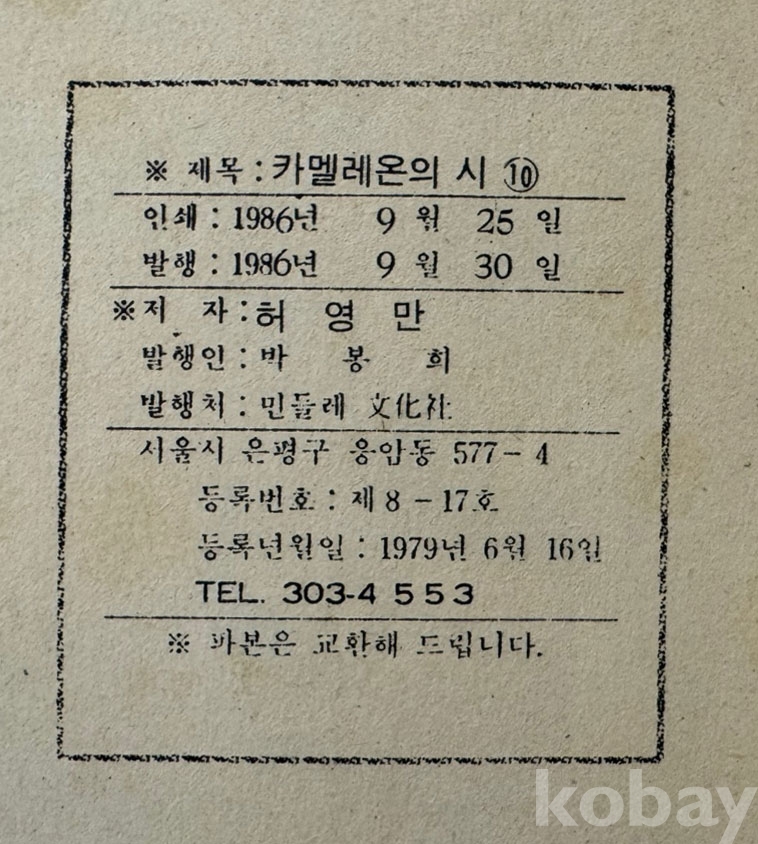 ※ 제목 : 카멜레온의 시 ⑩
인쇄 : 1986년 9 월 25 일
발행 : 1986년 9 월 30 일
※ 저 자 : 허 영 만
발행인 : 박 봉 희
발행처 : 민들레 文化社
서울시 은평구 응암동 577 - 4
등록번호 : 제 8 - 17호
등록년월일 : 1979년 6월 16일
TEL. 303-4 5 5 3
※ 파본은 교환해 드립니다.
kobay